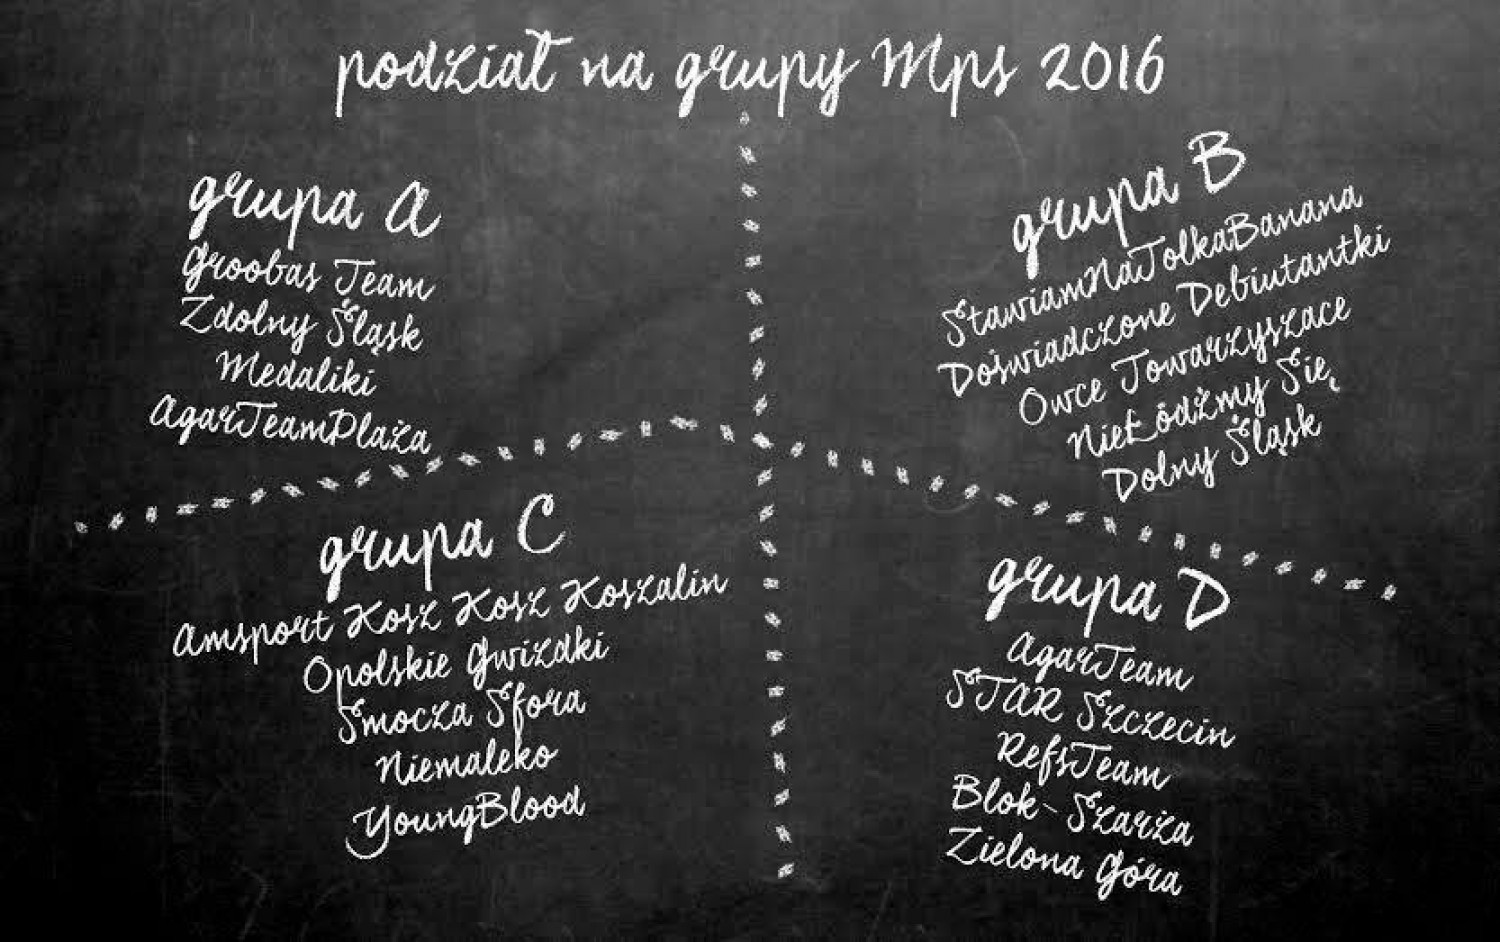 podział na grupy Mps 2016
grupa A
Groobas Team
Zdolny Śląsk
Medaliki
AgarTeamPlaża
grupa B
StawiamNaTolkaBanana
Doświadczone Debiutantki
Owce Towarzyszące
NieŁódźmy Się,
Dolny Śląsk
grupa C
Amsport Kosz Kosz Koszalin
Opolskie Gwizdki
Smocza Sfora
Niemaleko
YoungBlood
grupa D
AgarTeam
STAR Szczecin
RefsTeam
Blok-Szarża
Zielona Góra